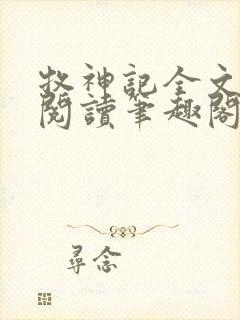 牧神記全文
閱讀筆趣閣
尋念